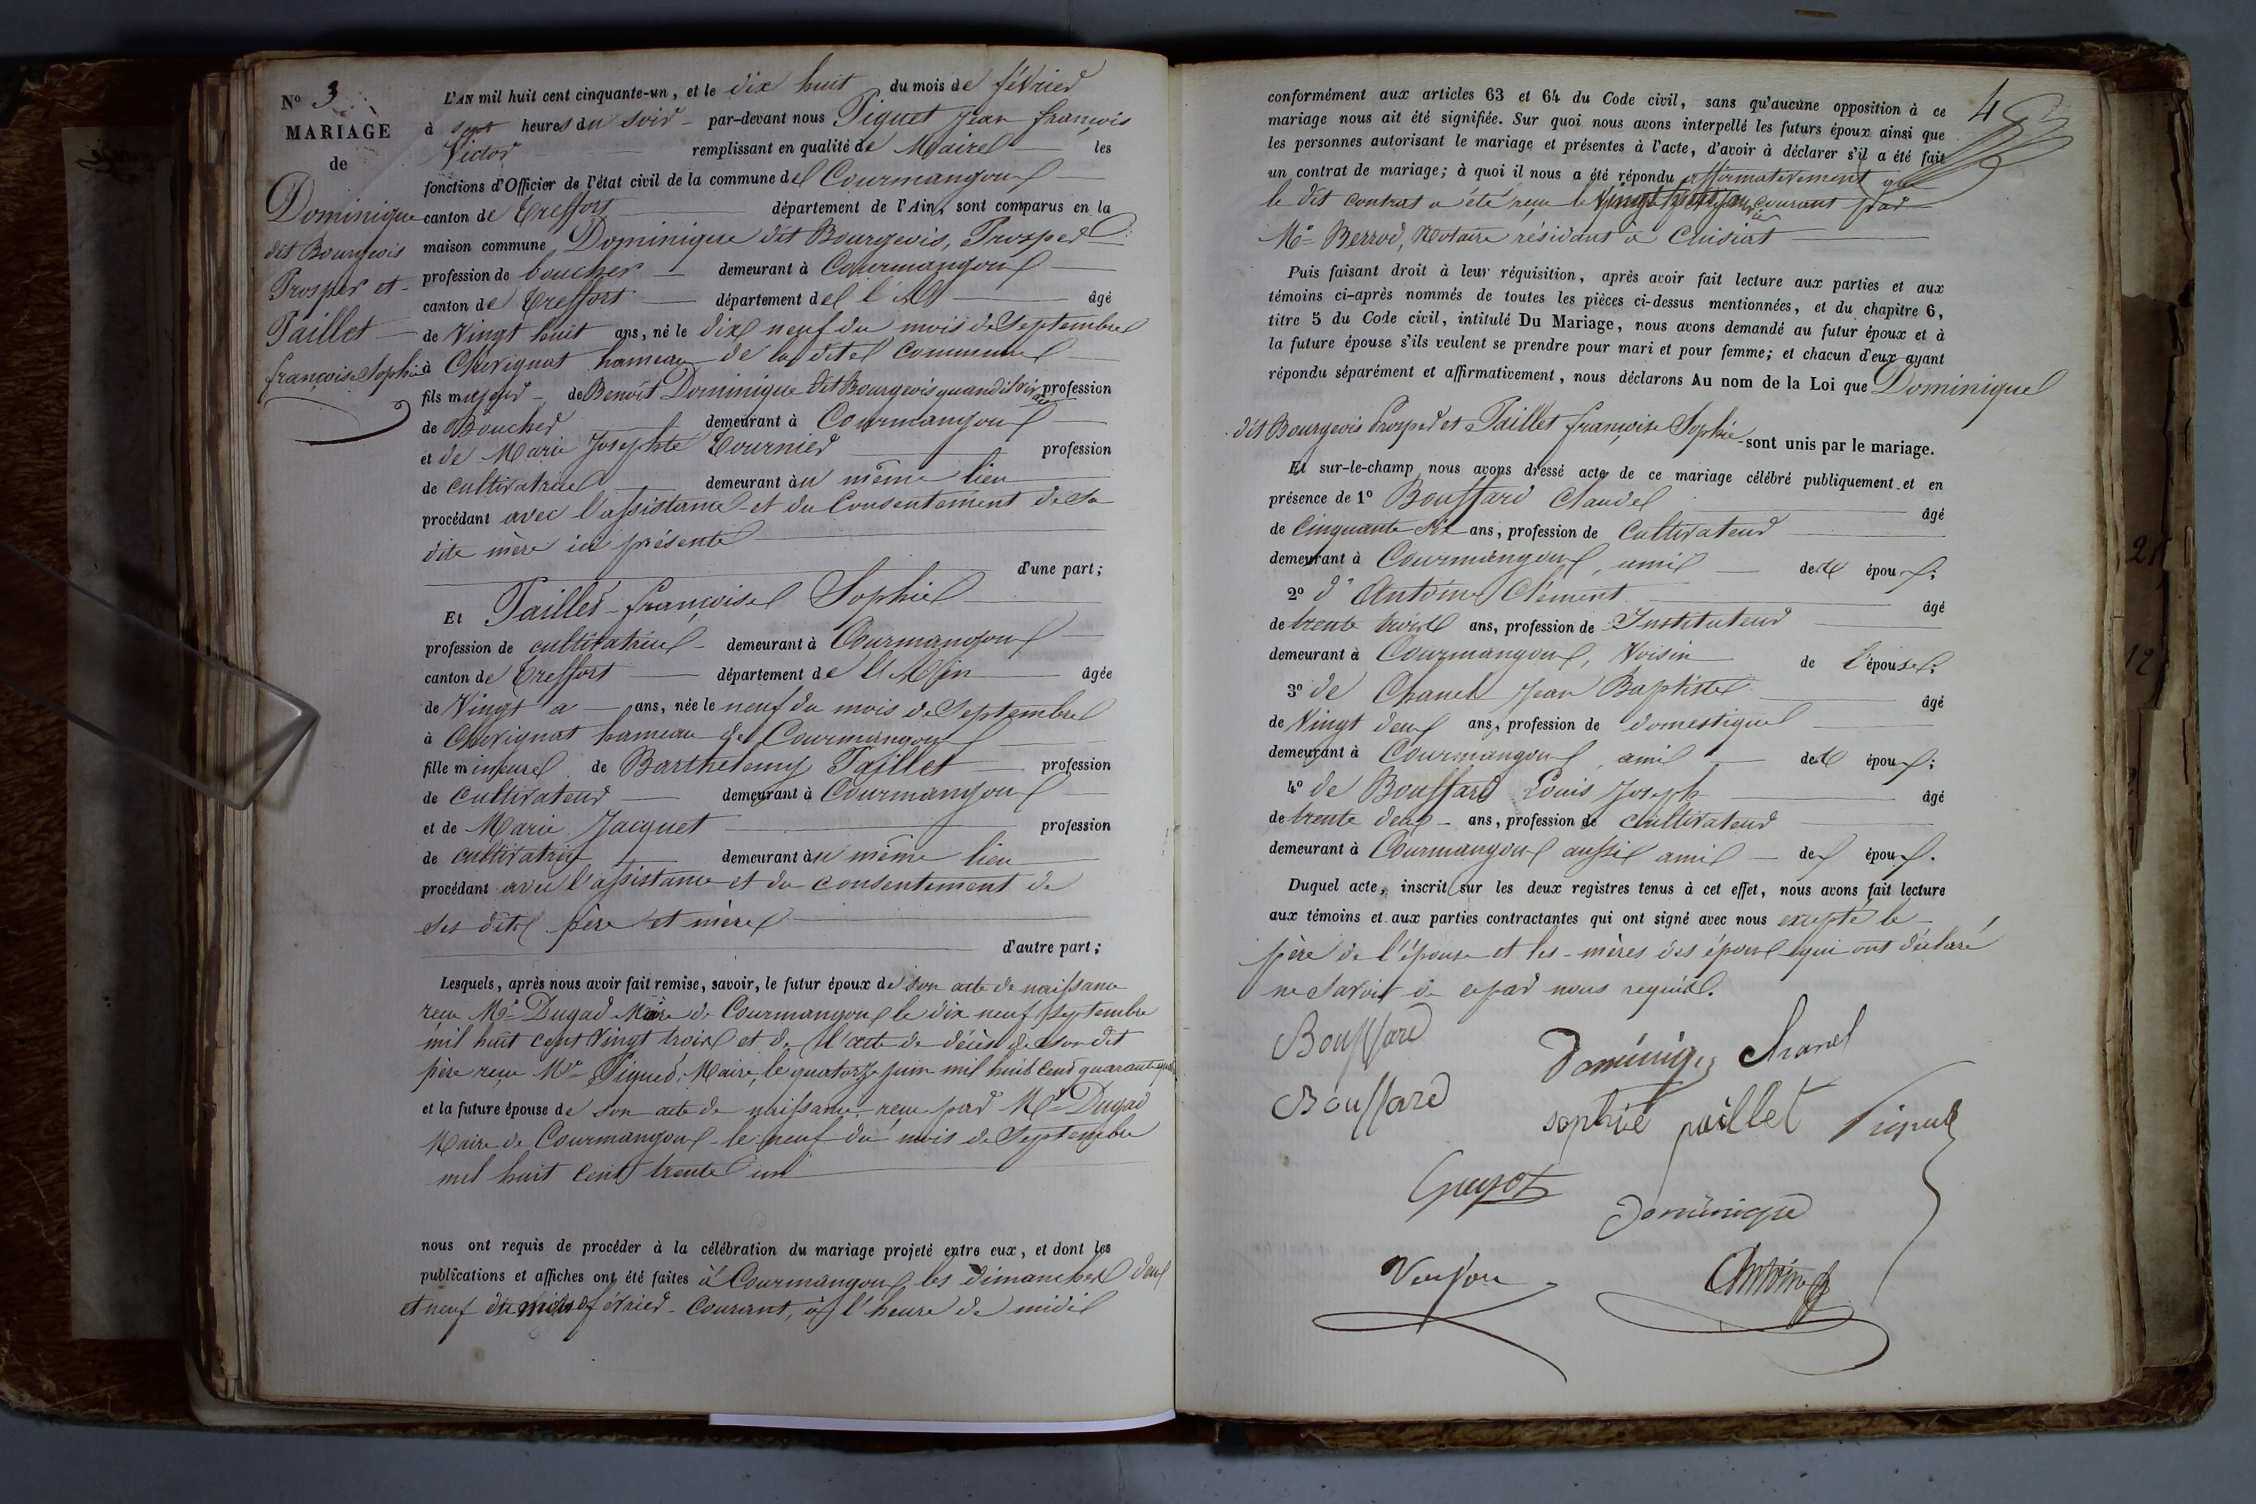 N° 3
MARIAGE
de
Dominique
dit Bourgeois
Prosper et
Paillet
françoise Sophie
L'AN mil huit cent cinquante-un, et le dix huit du mois de février
à sept heures du soir par-devant nous Piquet Jean françois
Victor remplissant en qualité de Maire les
fonctions d'Officier de l'état civil de la commune de Courmangoux
canton de Treffort département de l'Ain, sont comparus en la
maison commune Dominique dit Bourgeois, Prosper
profession de boucher demeurant à Courmangoux
canton de Treffort département de l'Ain âgé
de Vingt huit ans, né le dix neuf du mois de Septembre
à Chevignat hameau de la dite commune
fils majeur de Benoît Dominique dit Bourgeois quand il vivait profession
de Boucher demeurant à Courmangoux
et de Marie Josephte Tournier profession
de cultivatrice demeurant au même lieu
procédant avec l'assistance et du Consentement de Sa
dite mère ici présente
d'une part;
Et Paillet françoise Sophie
profession de cultivatrice demeurant à Courmangoux
canton de Treffort département de l'Ain âgée
de Vingt a ans, née le neuf du mois de Septembre
à Chevignat hameau de Courmangoux
fille mineure de Barthelemy Paillet profession
de Cultivateur demeurant à Courmangoux
et de Marie Jacquet profession
de cultivatrice demeurant au même lieu
procédant avec l'assistance et du consentement de
ses dits père et mère
d'autre part;
Lesquels, après nous avoir fait remise, savoir, le futur époux de son acte de naissance
reçu Mr Dugad Maire de Courmangoux le dix neuf Septembre
mil huit cent Vingt trois et de l'acte de décès de son dit
père reçu Mr Piquet Maire, le quatorze juin mil huit cent quarante
et la future épouse de son acte de naissance reçu par Mr Dugad
Maire de Courmangoux le neuf du mois de Septembre
mil huit cent trente un
nous ont requis de procéder à la célébration du mariage projeté entre eux, et dont les
publications et affiches ont été faites à Courmangoux les dimanches deux
et neuf du mois de février Courant, à l'heure de midi
4
conformément aux articles 63 et 64 du Code civil, sans qu'aucune opposition à ce
mariage nous ait été signifiée. Sur quoi nous avons interpellé les futurs époux ainsi que
les personnes autorisant le mariage et présentes à l'acte, d'avoir à déclarer s'il a été fait
un contrat de mariage; à quoi il nous a été répondu affirmativement que
le dit contrat a été reçu le courant par
Me Berrod, Notaire résidant à Cuisiat
Puis faisant droit à leur réquisition, après avoir fait lecture aux parties et aux
témoins ci-après nommés de toutes les pièces ci-dessus mentionnées, et du chapitre 6,
titre 5 du Code civil, intitulé Du Mariage, nous avons demandé au futur époux et à
la future épouse s'ils veulent se prendre pour mari et pour femme; et chacun d'eux ayant
répondu séparément et affirmativement, nous déclarons Au nom de la Loi que Dominique
dit Bourgeois Prosper et Paillet françoise Sophie sont unis par le mariage.
Et sur-le-champ nous avons dressé acte de ce mariage célébré publiquement et en
présence de 1° Bouffard Claude âgé
de Cinquante six ans, profession de Cultivateur
demeurant à Courmangoux, ami des époux;
2° d'Antoine Clément âgé
de trente trois ans, profession de Instituteur
demeurant à Courmangoux, Voisin de l'épouse;
3° de Chanel Jean Baptiste âgé
de Vingt deux ans, profession de domestique
demeurant à Courmangoux, ami des époux;
4° de Bouffard Louis Joseph âgé
de trente deux ans, profession de cultivateur
demeurant à Courmangoux aussi ami des époux.
Duquel acte, inscrit sur les deux registres tenus à cet effet, nous avons fait lecture
aux témoins et aux parties contractantes qui ont signé avec nous excepté le
père de l'épouse et les mères des époux qui ont déclaré
ne Savoir de ce par nous requis.
Bouffard
Dominiqe Chanel
Bouffard
sophie paillet Piquet
Guyot
Dominique
Antoine